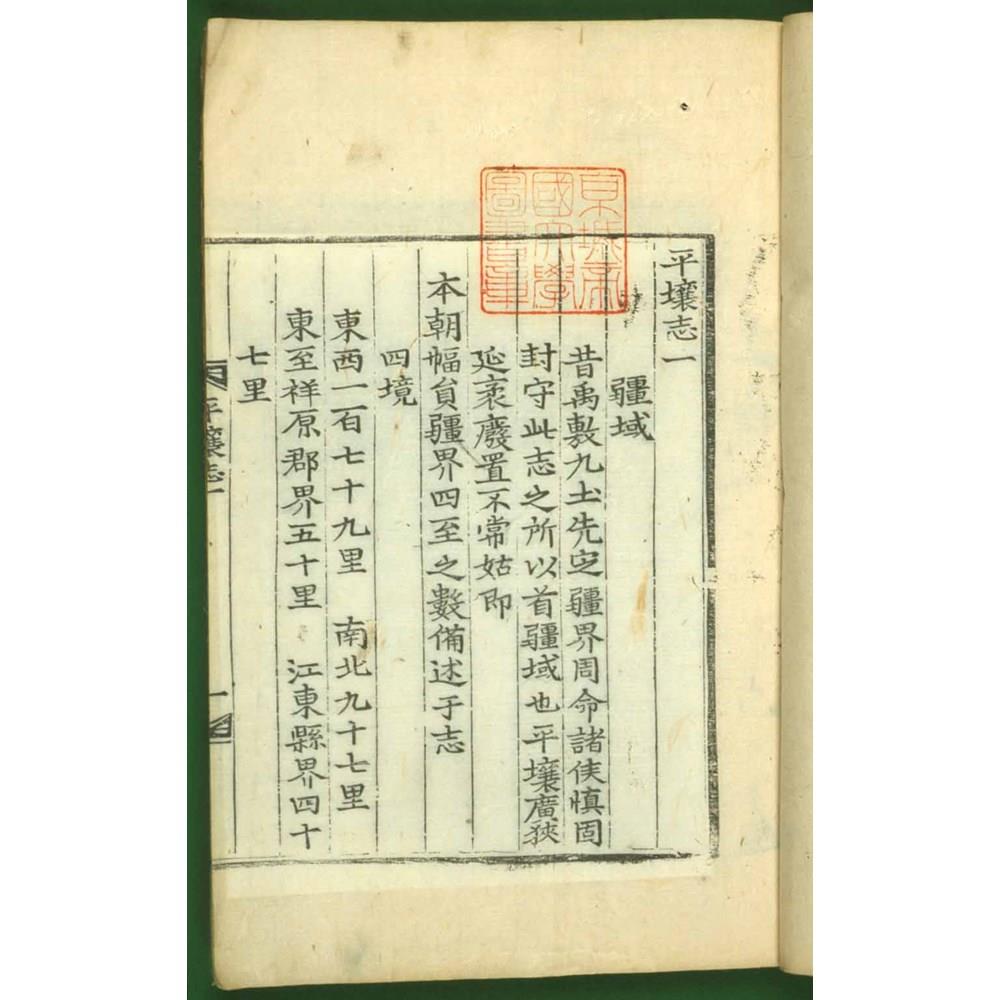 平壤志一
疆域
昔禹敷九土先定疆界周命諸侯慎固
封守此志之所以首疆域也平壤廣狹
延袤廢置不常姑即
本朝幅員疆界四至之數備述于志
四境
東西一百七十九里 南北九十七里
東至祥原郡界五十里 江東縣界四十
七里
平壤志一
一
京城帝
國大學
圖書章